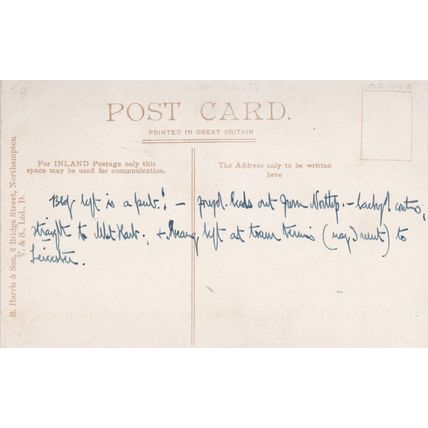 POST CARD.
PRINTED IN GREAT BRITAIN
For INLAND Postage only this
space may be used for communication.
The Address only to be written
here
R. Harris & Son, 6 Bridge Street, Northampton
V. & S., Ltd., D.
left is a pub! – out from –
straight to Mkt Harb. + left at tram (may I next) to
Leicester.